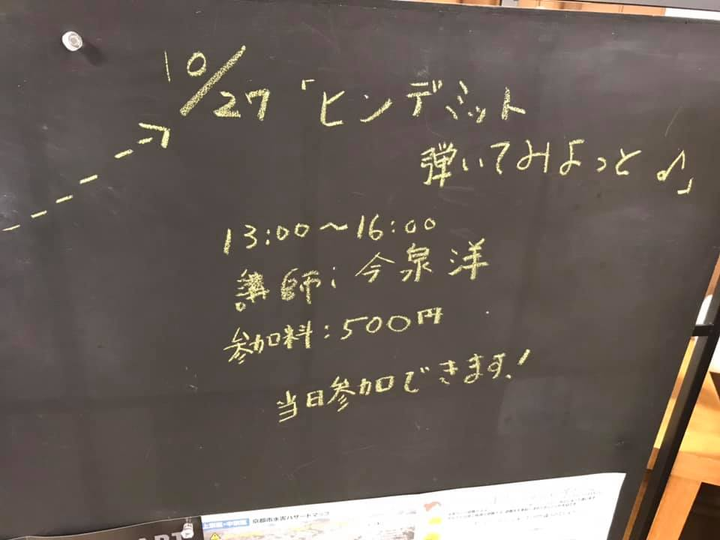 10/27「ヒンデミット
弾いてみよっと♪」
13:00〜16:00
講師:今泉洋
参加料:500円
当日参加できます!
京都市水災ハザードマップ